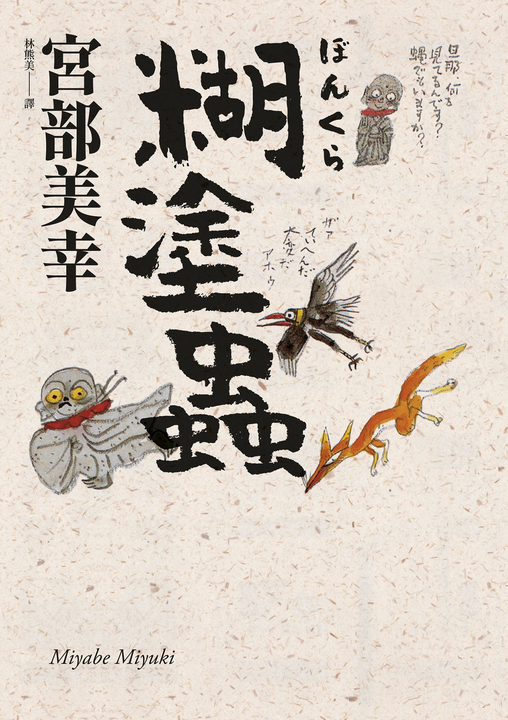 旦那、何を
見てるんです?
蠅でもいますか?
ぼんくら
糊塗蟲
ガァ
ていへんだ
大変だ
アホウ
宮部美幸
林熊美——譯
Miyabe Miyuki